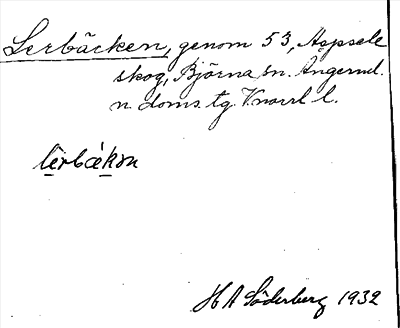 Lerbäcken, genom 53, Aspsele
skog, Björna sn. Ångerml.
n doms. tg. Vnorrl l.
HA Söderberg 1932